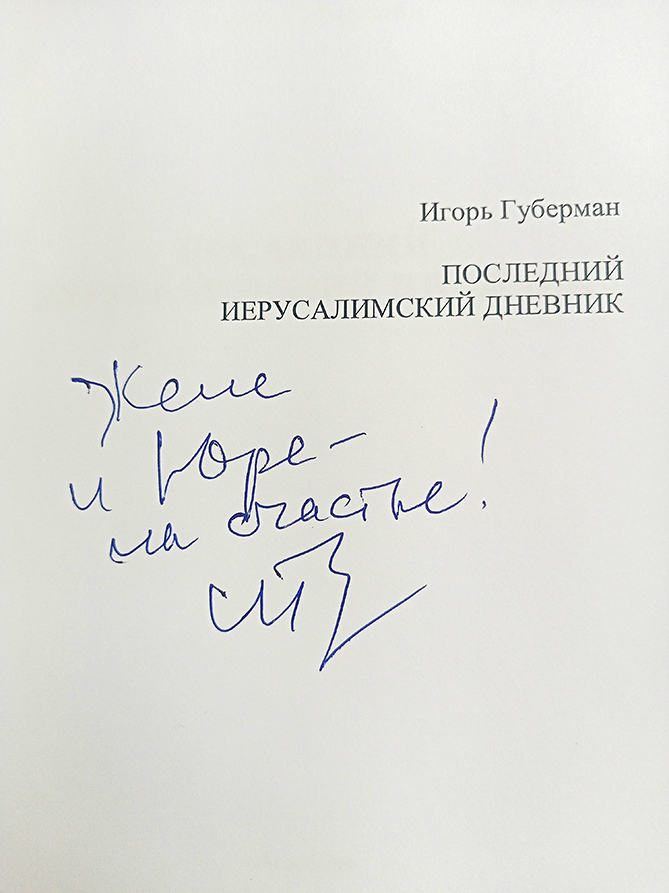 Игорь Губерман
ПОСЛЕДНИЙ
ИЕРУСАЛИМСКИЙ ДНЕВНИК
Жене
и Юре –
на счастье!